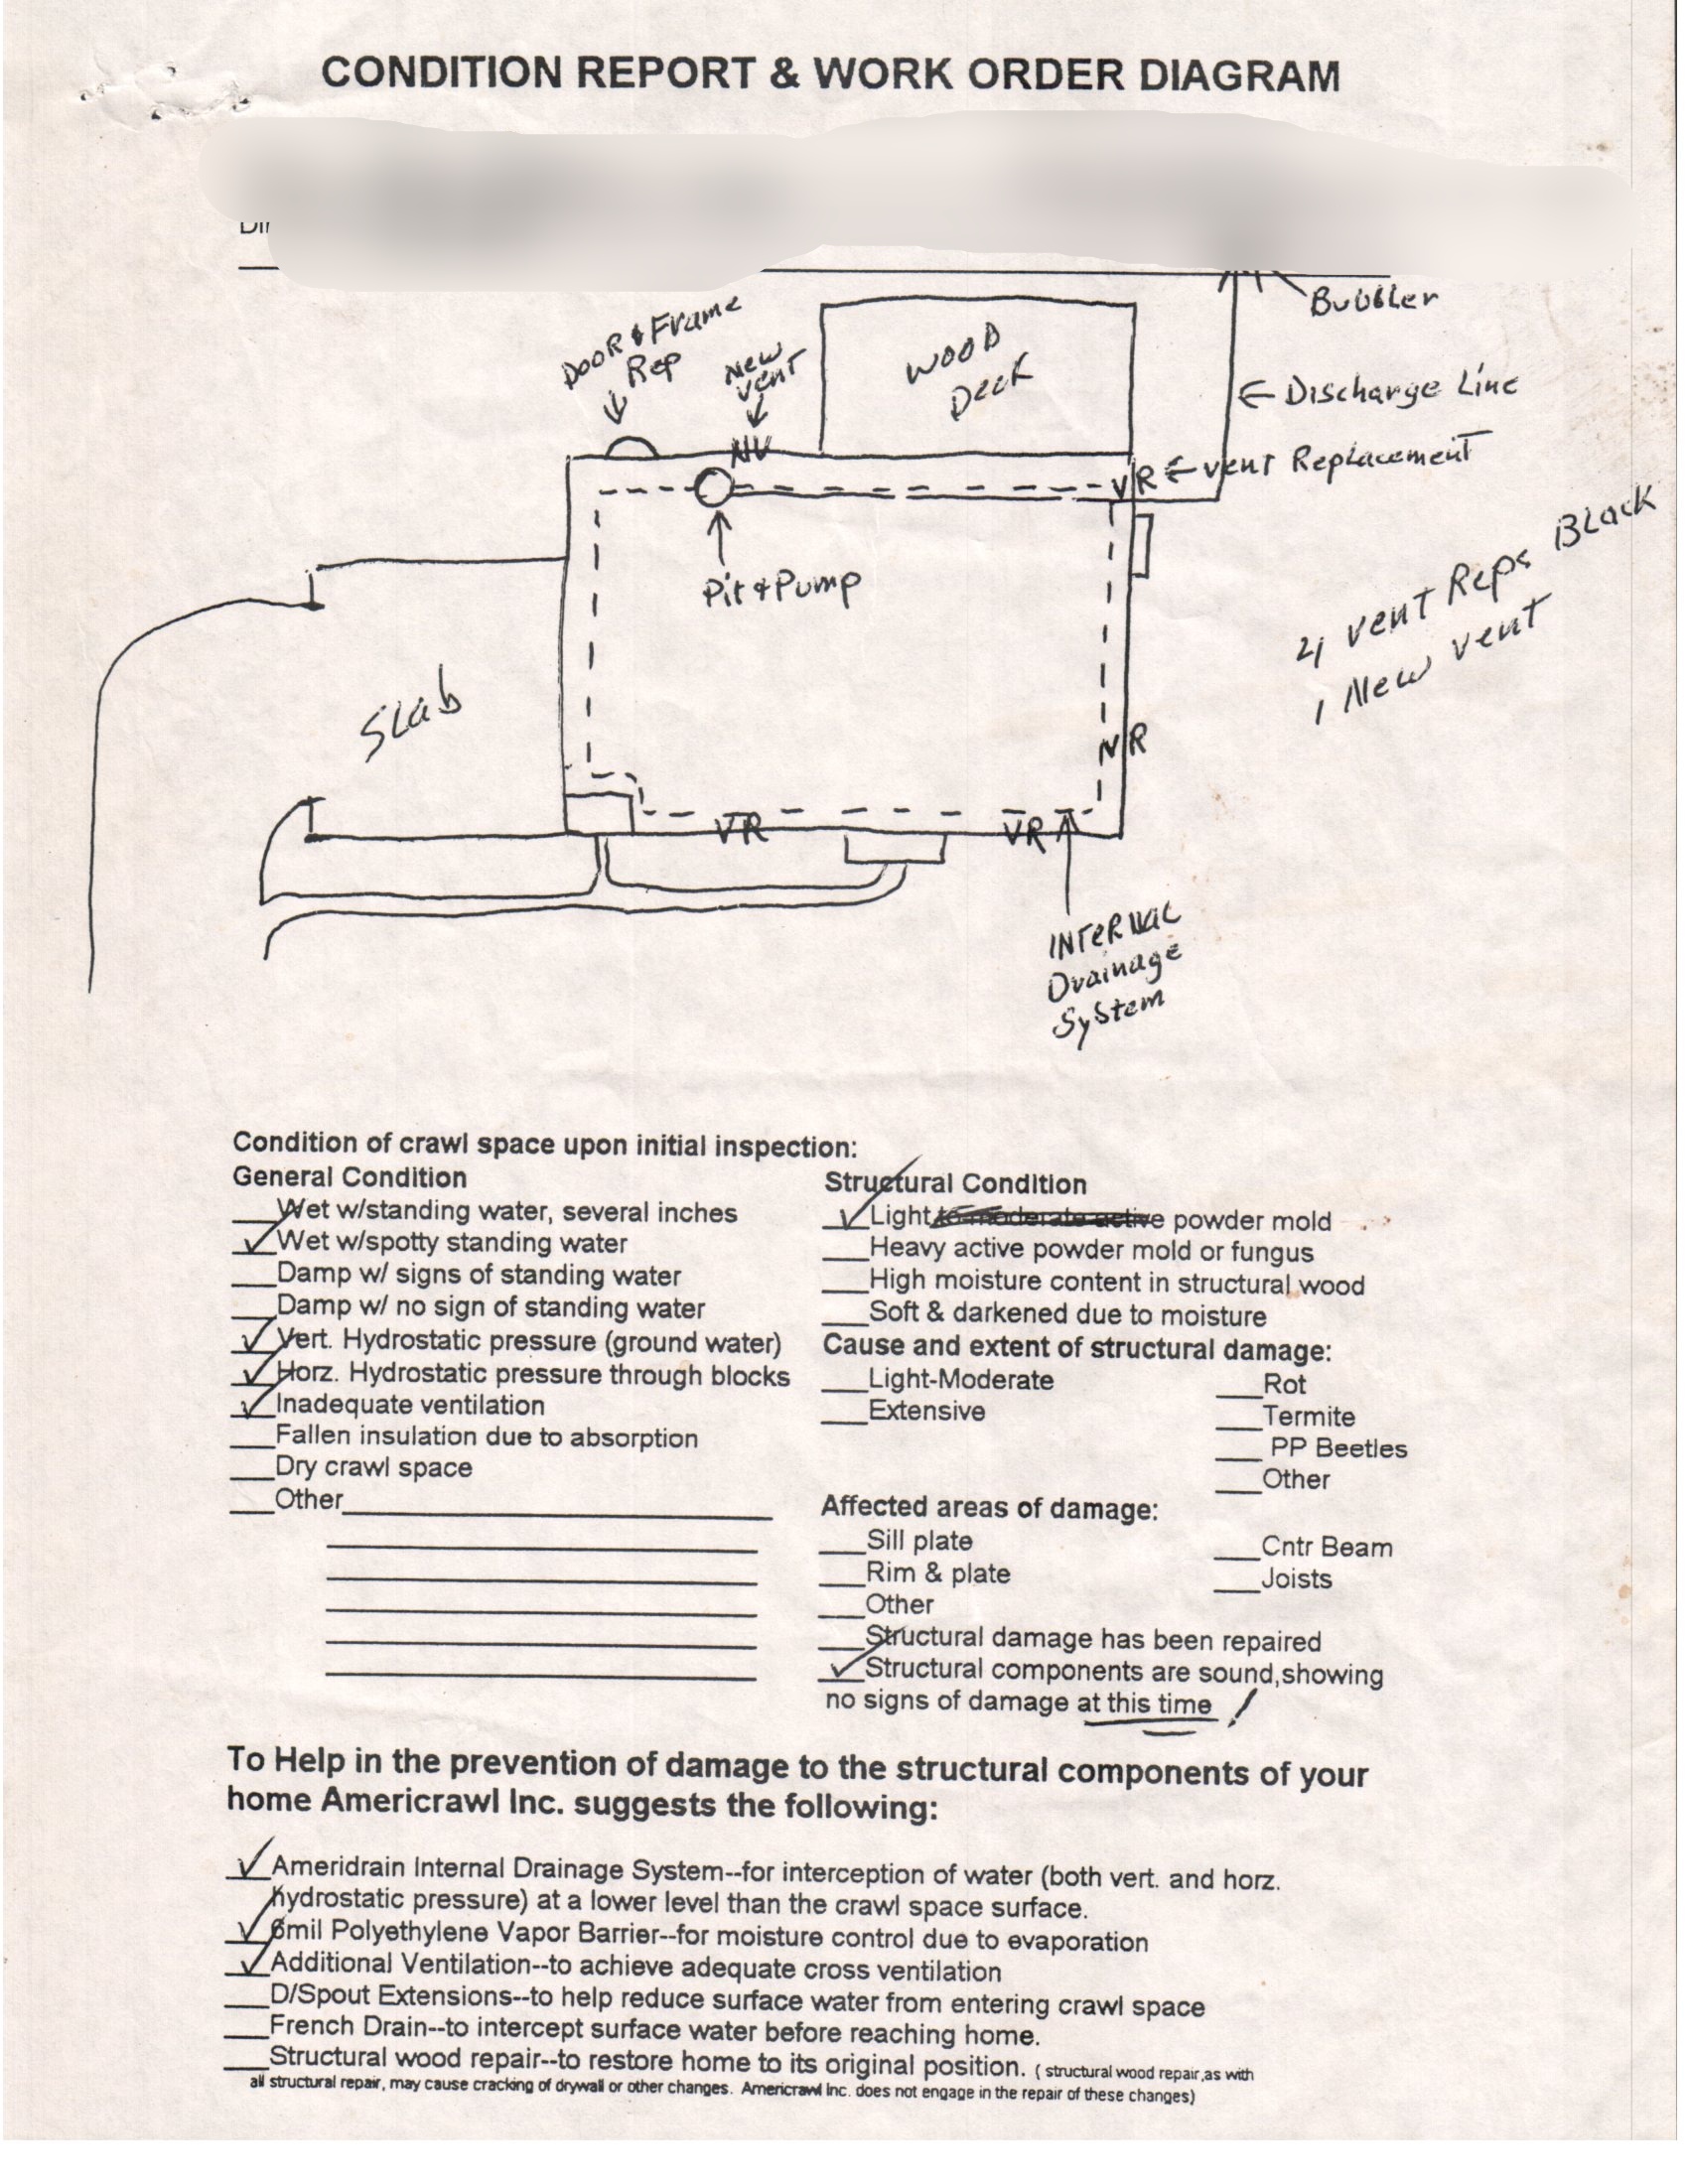 CONDITION REPORT & WORK ORDER DIAGRAM
Bubbler
Door & Frame
Rep
New
Vent
Wood
Deck
Discharge Line
NV
VR
Vent Replacement
Pit & Pump
4 Vent Reps Black
1 New Vent
Slab
VR
VR
VR
INTERNAL
Drainage
System
Condition of crawl space upon initial inspection:
General Condition
___Wet w/standing water, several inches
✓ Wet w/spotty standing water
___Damp w/ signs of standing water
___Damp w/ no sign of standing water
✓ Vert. Hydrostatic pressure (ground water)
✓ Horz. Hydrostatic pressure through blocks
✓ Inadequate ventilation
___Fallen insulation due to absorption
___Dry crawl space
___Other
Structural Condition
✓ Light to moderate active powder mold
___Heavy active powder mold or fungus
___High moisture content in structural wood
___Soft & darkened due to moisture
Cause and extent of structural damage:
___Light-Moderate ___Rot
___Extensive ___Termite
___PP Beetles
___Other
Affected areas of damage:
___Sill plate ___Cntr Beam
___Rim & plate ___Joists
___Other
___Structural damage has been repaired
✓ Structural components are sound,showing
no signs of damage at this time !
To Help in the prevention of damage to the structural components of your
home Americrawl Inc. suggests the following:
✓ Ameridrain Internal Drainage System--for interception of water (both vert. and horz.
hydrostatic pressure) at a lower level than the crawl space surface.
✓ 6mil Polyethylene Vapor Barrier--for moisture control due to evaporation
✓ Additional Ventilation--to achieve adequate cross ventilation
___D/Spout Extensions--to help reduce surface water from entering crawl space
___French Drain--to intercept surface water before reaching home.
___Structural wood repair--to restore home to its original position. ( structural wood repair,as with
all structural repair, may cause cracking of drywall or other changes. Americrawl Inc. does not engage in the repair of these changes)